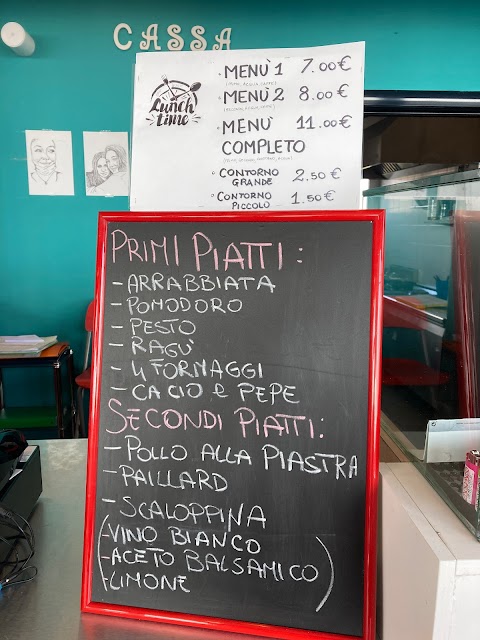 CASSA
Lunch time
· MENÙ 1 7.00€
· MENÙ 2 8.00€
· MENÙ COMPLETO 11.00€
· CONTORNO GRANDE 2.50€
· CONTORNO PICCOLO 1.50€
PRIMI PIATTI:
- ARRABBIATA
- POMODORO
- PESTO
- RAGÙ
- 4 FORMAGGI
- CACIO e PEPE
SECONDI PIATTI:
- POLLO ALLA PIASTRA
- PAILLARD
- SCALOPPINA
(-VINO BIANCO
-ACETO BALSAMICO)
-LIMONE